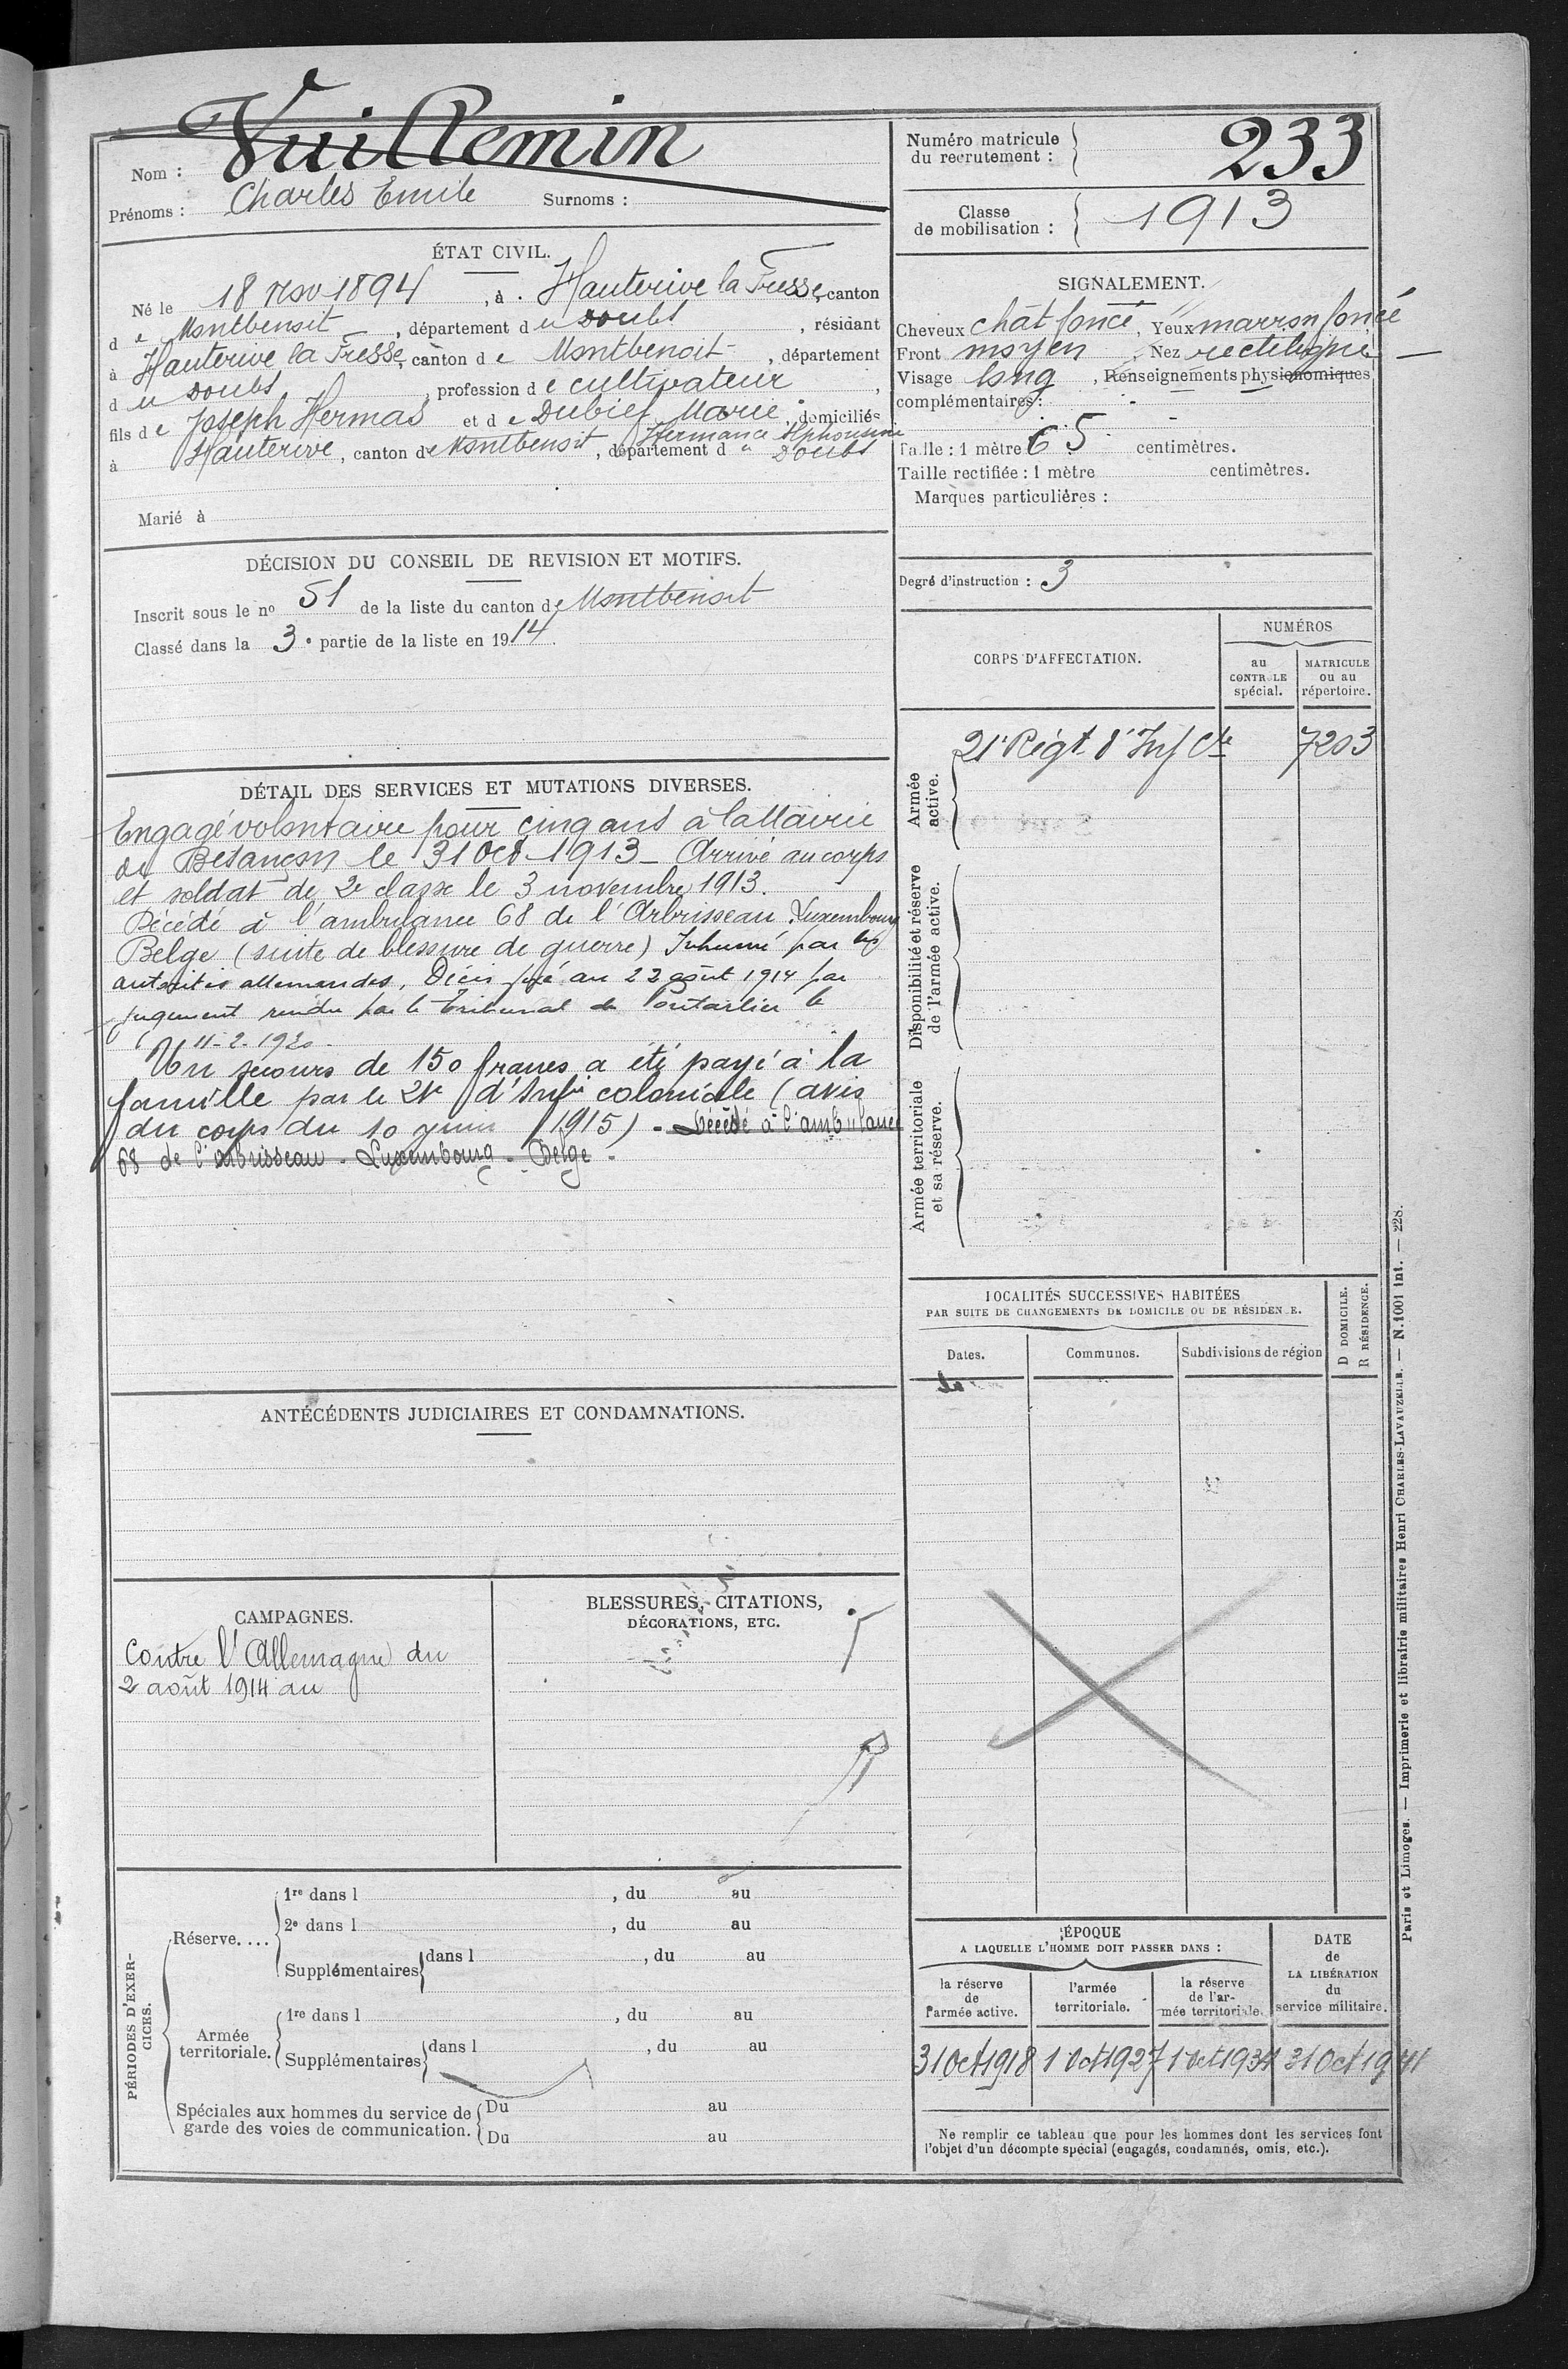 Nom : Vuillemin
Prénoms : Charles Emile Surnoms :
Numéro matricule
du recrutement : 233
Classe
de mobilisation : 1913
ÉTAT CIVIL.
Né le 18 nov 1894, à Hauterive la Fresse, canton
de Montbenoit, département du Doubs, résidant
à Hauterive la Fresse, canton de Montbenoit, département
du Doubs, profession de cultivateur,
fils de Joseph Hermas et de Dubief Marie domiciliés
Hermance Alphonsine
à Hauterive, canton de Montbenoit, département du Doubs
Marié à
SIGNALEMENT.
Cheveux chât foncé, Yeux marron foncé
Front moyen, Nez rectiligne
Visage long, Renseignements physionomiques
complémentaires :
Taille : 1 mètre 65 centimètres.
Taille rectifiée : 1 mètre centimètres.
Marques particulières :
Degré d'instruction : 3
DÉCISION DU CONSEIL DE REVISION ET MOTIFS.
Inscrit sous le nº 51 de la liste du canton de Montbenoit
Classé dans la 3e partie de la liste en 1914.
CORPS D'AFFECTATION.
NUMÉROS
au
CONTROLE
spécial.
MATRICULE
ou au
répertoire.
Armée
active.
21e Régt d'Inf Cle 7203
Disponibilité et réserve
de l'armée active.
Armée territoriale
et sa réserve.
DÉTAIL DES SERVICES ET MUTATIONS DIVERSES.
Engagé volontaire pour cinq ans à la Mairie
de Besançon le 31 Oct 1913 - Arrivé au corps
et soldat de 2e classe le 3 novembre 1913.
Décédé à l'ambulance 68 de l'Arbrisseau Luxembourg
Belge (suite de blessure de guerre) Inhumé par les
autorités allemandes. Décès fixé au 22 août 1914 par
jugement rendu par le Tribunal de Pontarlier le
11-2-1920.
Un secours de 150 francs a été payé à la
famille par le 21e d'Infie coloniale (avis
du corps du 10 juin 1915) - Décédé à l'ambulance
68 de l'Arbrisseau - Luxembourg - Belge -
LOCALITÉS SUCCESSIVES HABITÉES
PAR SUITE DE CHANGEMENTS DE DOMICILE OU DE RÉSIDENCE.
Dates.
Communes.
Subdivisions de région
D DOMICILE.
R RÉSIDENCE.
ANTÉCÉDENTS JUDICIAIRES ET CONDAMNATIONS.
CAMPAGNES.
Contre l'Allemagne du
2 août 1914 au
BLESSURES, CITATIONS,
DÉCORATIONS, ETC.
PÉRIODES D'EXER-
CICES.
Réserve....
1re dans l , du au
2e dans l , du au
Supplémentaires dans l , du au
Armée
territoriale.
1re dans l , du au
Supplémentaires dans l , du au
Spéciales aux hommes du service de
garde des voies de communication.
Du au
Du au
ÉPOQUE
A LAQUELLE L'HOMME DOIT PASSER DANS :
la réserve
de
l'armée active.
l'armée
territoriale.
la réserve
de l'ar-
mée territoriale.
DATE
de
LA LIBÉRATION
du
service militaire.
31 Oct 1918 1 Oct 1927 1 Oct 1934 31 Oct 1941
Ne remplir ce tableau que pour les hommes dont les services font
l'objet d'un décompte spécial (engagés, condamnés, omis, etc.).
Paris et Limoges. — Imprimerie et librairie militaires Henri CHARLES-LAVAUZELLE. — N. 1001 int. — 228.